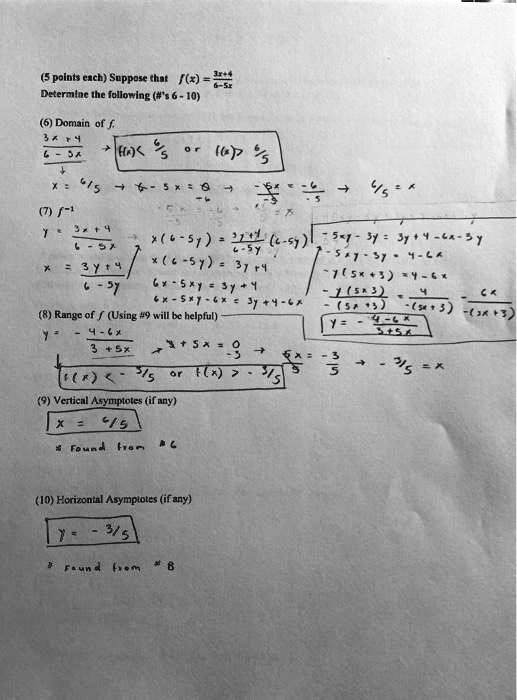 (5 points each) Suppose that f(x) = 3x+4 / 6-5x
Determine the following (#'s 6 - 10)
(6) Domain of f.
3x + 4 / 6 - 5x → f(x) < 6/5 or f(x) > 6/5
x = 6/5 → 6 - 5x = 0 → -5x / -5 = -6 / -5 → 6/5 = x
-6
(7) f⁻¹
y = 3x + 4 / 6 - 5x
x = 3y + 4 / 6 - 5y
x(6 - 5y) = 3y+4 / 6-5y (6-5y)
x(6 - 5y) = 3y + 4
6x - 5xy = 3y + 4
6x - 5xy - 6x = 3y + 4 - 6x
-5xy - 3y = 3y + 4 - 6x - 3y
-5xy - 3y = 4 - 6x
-y(5x + 3) = 4 - 6x
-y(5x 3) / -(5x + 3) = 4 / -(5x + 3) - 6x / -(5x + 3)
y = - 4 - 6x / 3 + 5x
(8) Range of f (Using #9 will be helpful)
y = - 4 - 6x / 3 + 5x → 3 + 5x = 0 → 5x / 5 = -3 / 5 → - 3/5 = x
-3
f(x) < - 3/5 or f(x) > - 3/5
(9) Vertical Asymptotes (if any)
x = 6/5
* Found from #6
(10) Horizontal Asymptotes (if any)
y = - 3/5
* Found from #8